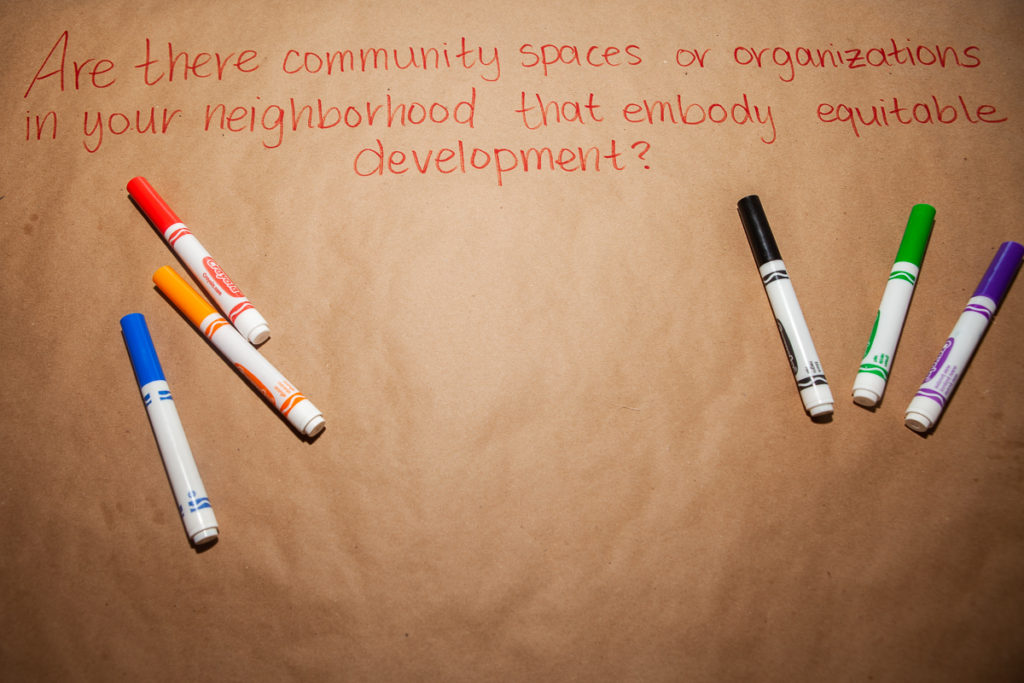 Are there community spaces or organizations
in your neighborhood that embody equitable
development?
Crayola
Crayola